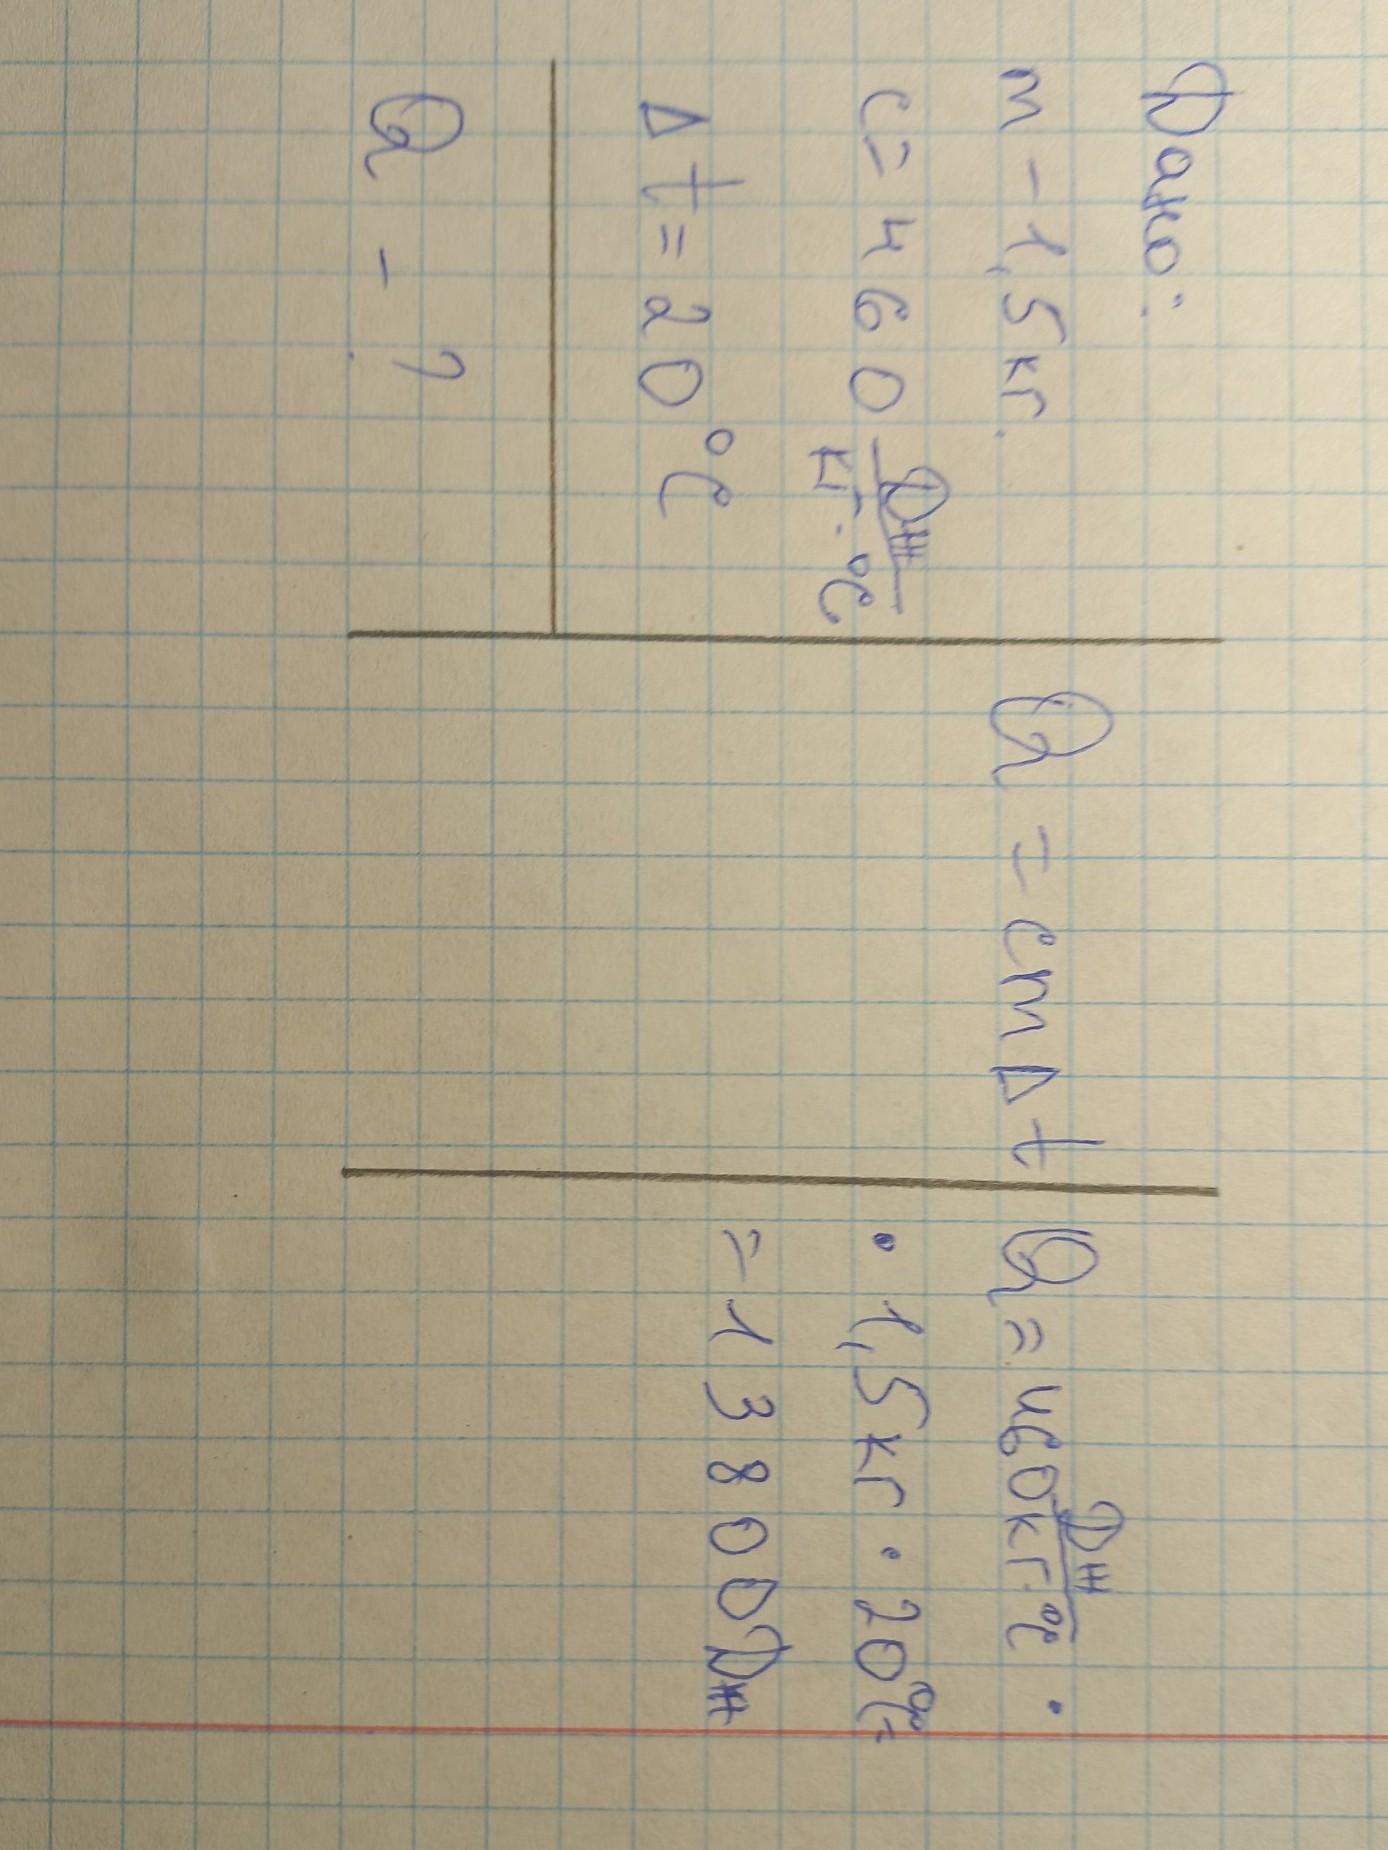 Дано:
m - 1,5кг.
c = 460 Дж/кг·°C
Δt = 20°C
Q - ?
Q = cmΔt
Q = 460 Дж/кг·°C ·
· 1,5кг · 20°C =
= 13800Дж